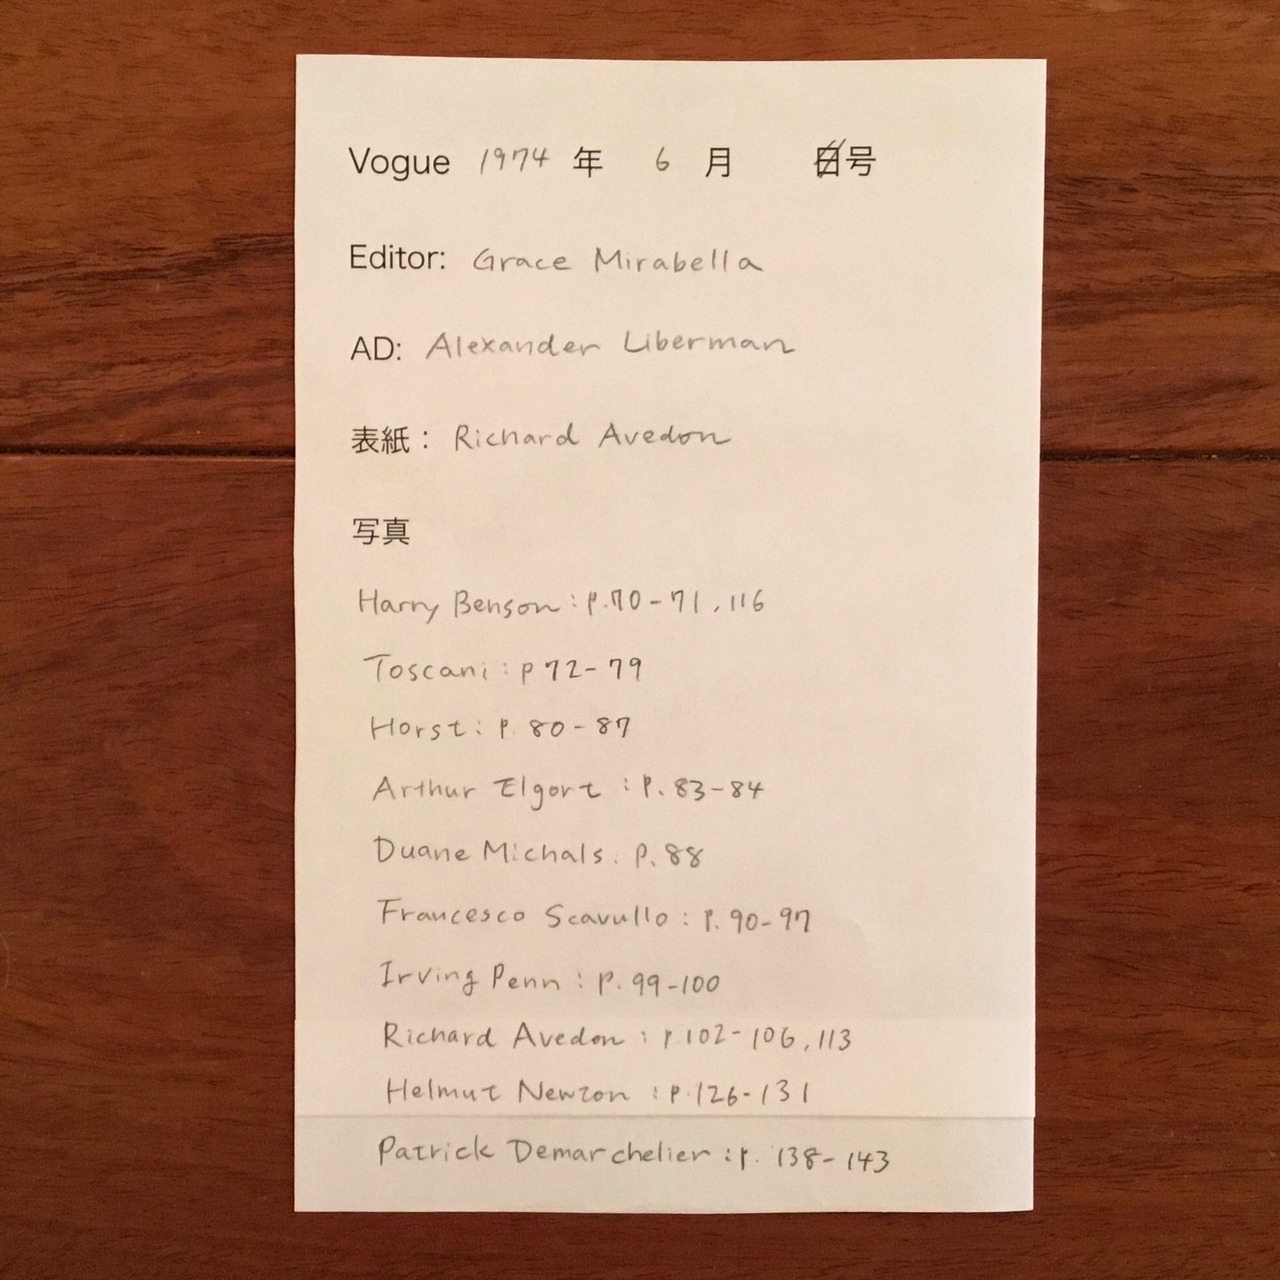 Vogue 1974 年 6 月 日号
Editor: Grace Mirabella
AD: Alexander Liberman
表紙： Richard Avedon
写真
Harry Benson : p.70-71, 116
Toscani : p 72-79
Horst : p. 80-87
Arthur Elgort : p. 83-84
Duane Michals : p. 88
Francesco Scavullo : p. 90-97
Irving Penn : p. 99-100
Richard Avedon : p 102-106, 113
Helmut Newton : p. 126-131
Patrick Demarchelier : p. 138-143